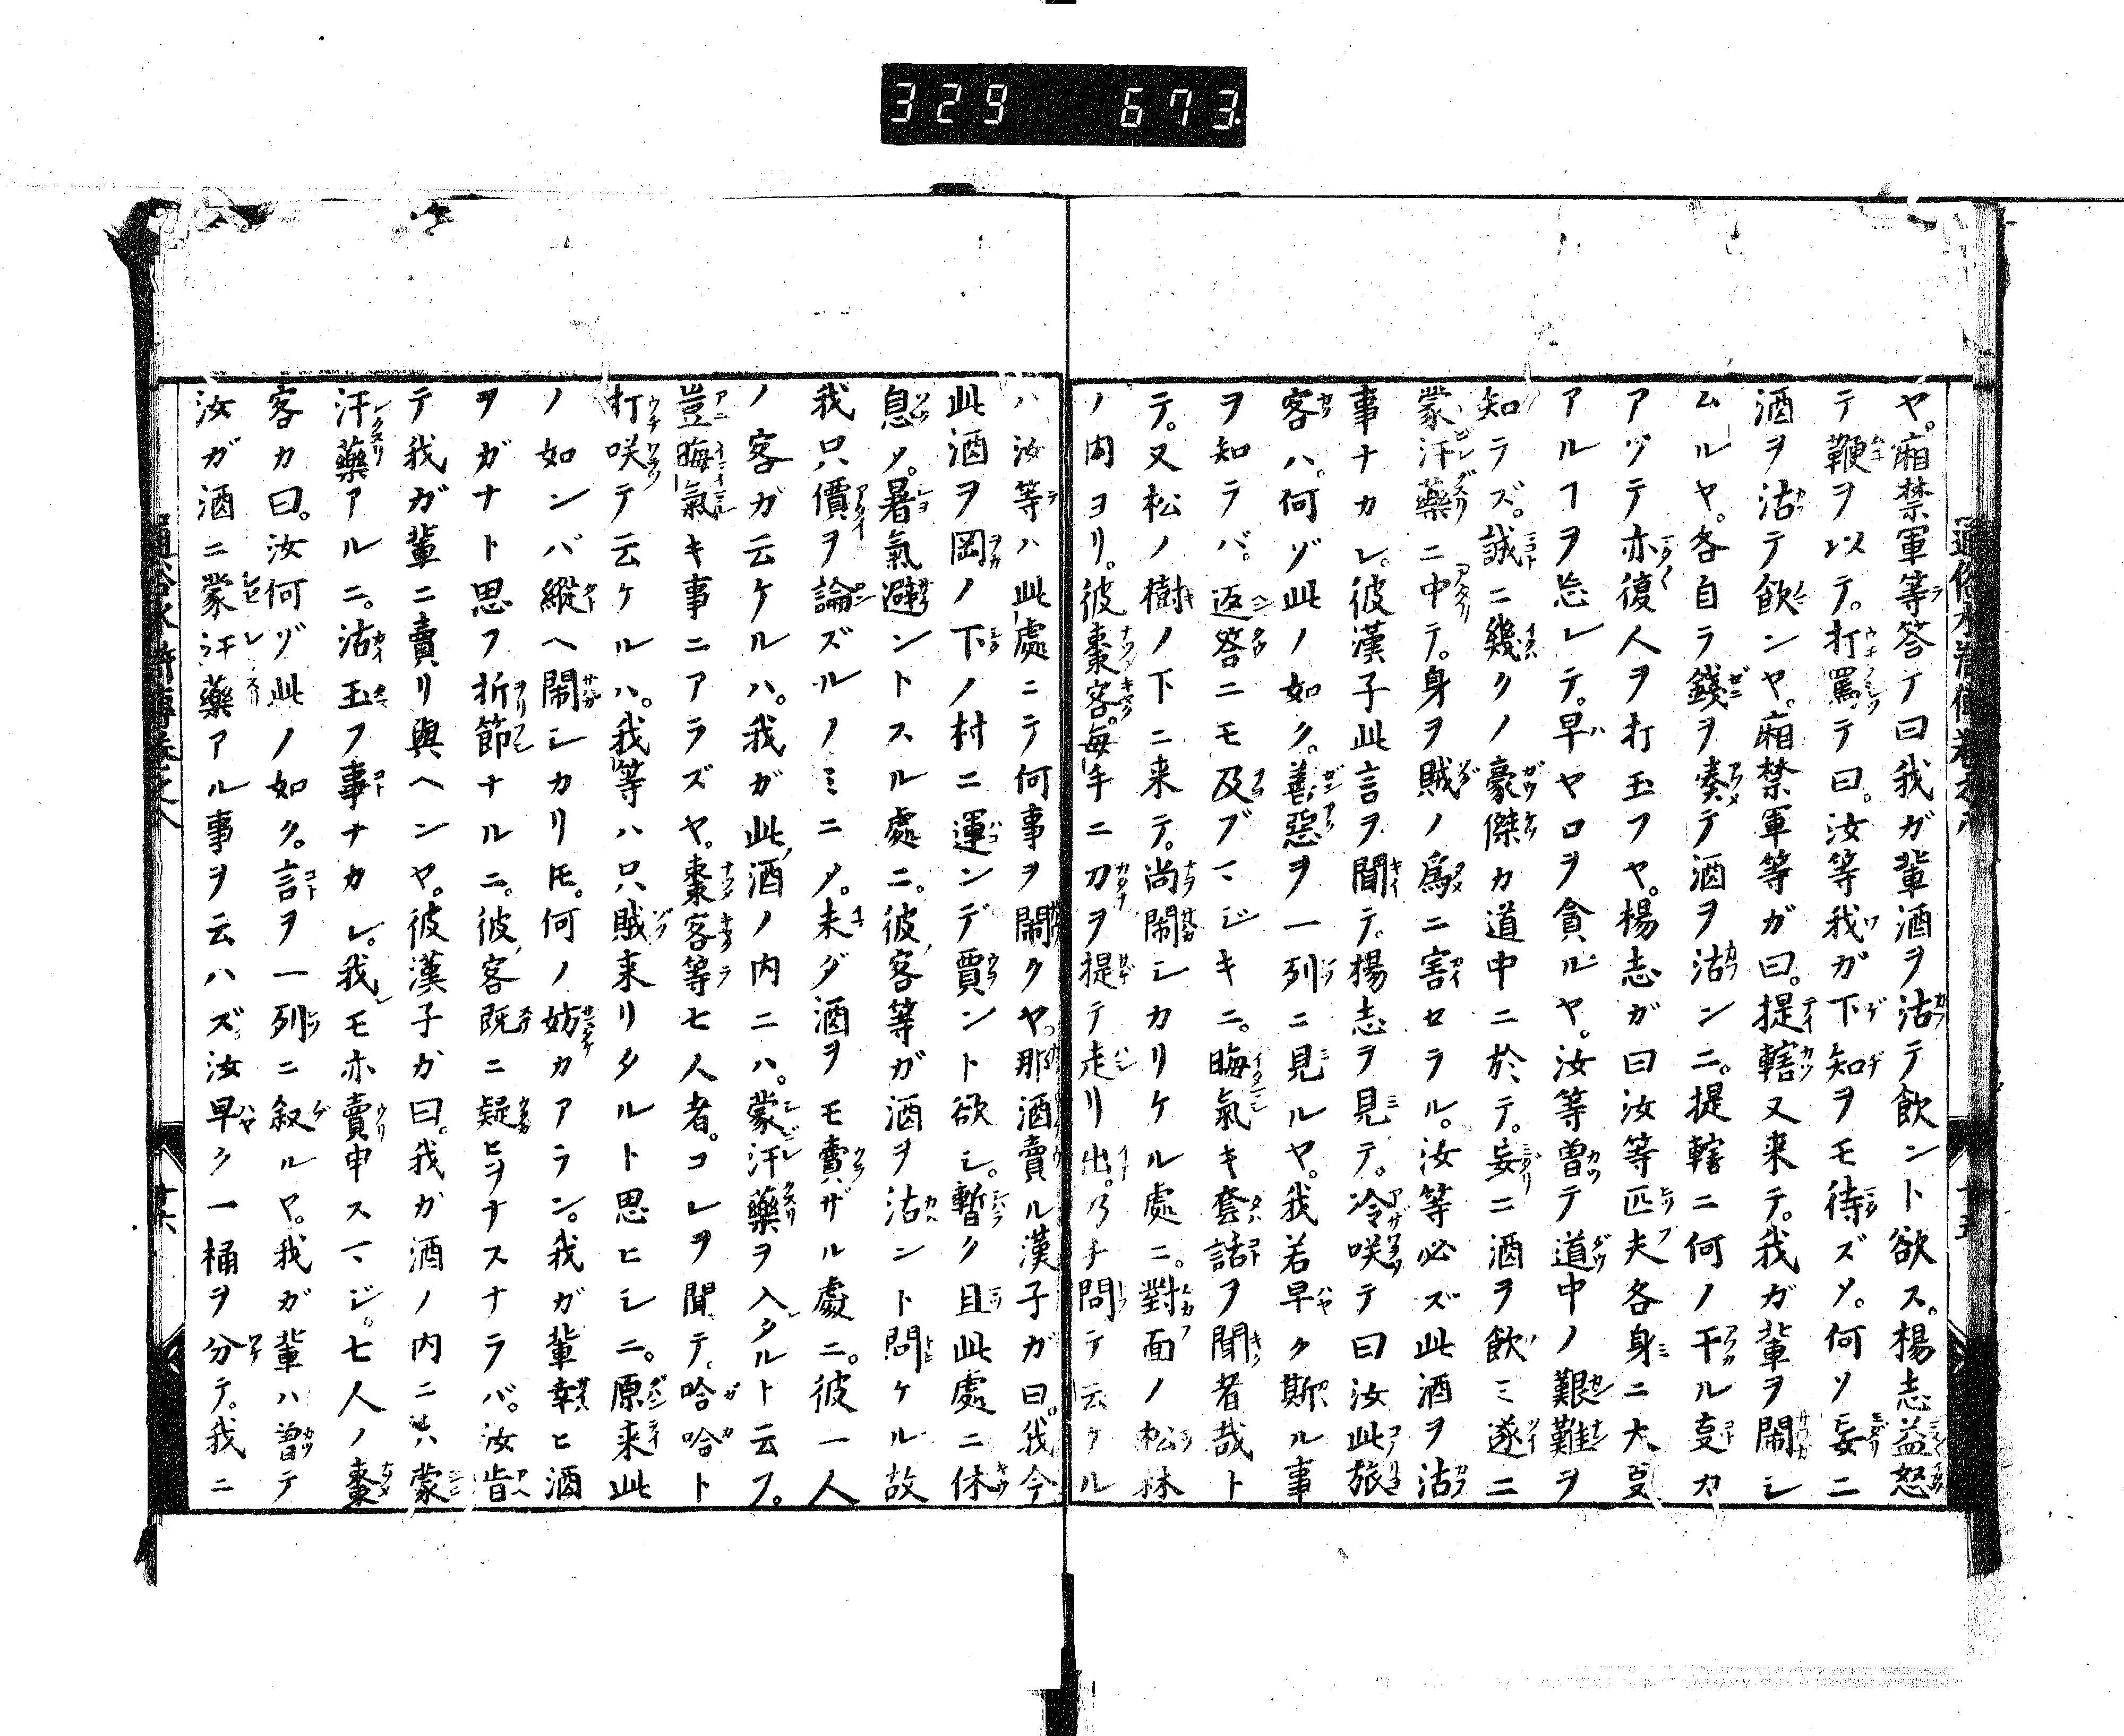 329 673.
ヤ。廂禁軍等答テ曰我ガ輩酒ヲ沽テ飲ント欲ス。楊志益怒
テ鞭ヲ以テ。打罵テ曰。汝等我ガ下知ヲモ待ズメ。何ソ妄ニ
酒ヲ沽テ飲ンヤ。廂禁軍等ガ曰。提轄又来テ。我ガ輩ヲ閙シ
ムルヤ。各自ラ錢ヲ湊テ酒ヲ沽ンニ。提轄ニ何ノ干ル㕝カ
アツテ亦復人ヲ打玉フヤ。楊志ガ曰汝等匹夫各身ニ大㕝
アルヿヲ忘レテ。早ヤロヲ貪ルヤ。汝等曽テ道中ノ艱難ヲ
知ラズ。誠ニ幾クノ豪傑カ道中ニ於テ。妄ニ酒ヲ飲ミ遂ニ
蒙汗藥ニ中テ。身ヲ賊ノ爲ニ害セラル。汝等必ズ此酒ヲ沽
事ナカレ。彼漢子此言ヲ聞テ。楊志ヲ見テ。冷咲テ曰汝此旅
客ハ。何ゾ此ノ如ク。善惡ヲ一列ニ見ルヤ。我若早ク斯ル事
ヲ知ラバ。返答ニモ及ブマジキニ。晦氣キ套話ヲ聞者哉ト
テ。又松ノ樹ノ下ニ来テ。尚閙シカリケル處ニ。對面ノ松林
ノ内ヨリ。彼棗客。毎手ニ刀ヲ提テ走リ出。乃チ問テ云ケル
ハ汝等ハ此處ニテ何事ヲ閙クヤ。那酒賣ル漢子ガ曰。我今
此酒ヲ岡ノ下ノ村ニ運ンデ賈ント欲シ。暫ク且此處ニ休
息メ。暑氣避ントスル處ニ。彼客等ガ酒ヲ沽ント問ケル故
我只價ヲ論ズルノミニメ。未ダ酒ヲモ賣ザル處ニ。彼一人
ノ客ガ云ケルハ。我ガ此酒ノ内ニハ。蒙汗藥ヲ入タルト云フ。
豈晦氣キ事ニアラズヤ。棗客等七人者。コレヲ聞テ。哈哈ト
打咲テ云ケルハ。我等ハ只賊来リタルト思ヒシニ。原来此
ノ如ンバ縦ヘ閙シカリ𪜈。何ノ妨カアラン。我ガ輩幸ヒ酒
ヲガナト思フ折節ナルニ。彼客既ニ疑ヒヲナスナラバ。汝皆
テ我ガ輩ニ賣リ與ヘンヤ。彼漢子ガ曰。我カ酒ノ内ニハ蒙
汗藥アルニ。沽玉フ事ナカレ。我モ亦賣申スマジ。七人ノ棗
客カ曰。汝何ゾ此ノ如ク。言ヲ一列ニ叙ルヤ。我ガ輩ハ曽テ
汝ガ酒ニ蒙汗藥アル事ヲ云ハズ。汝早ク一桶ヲ分テ。我ニ